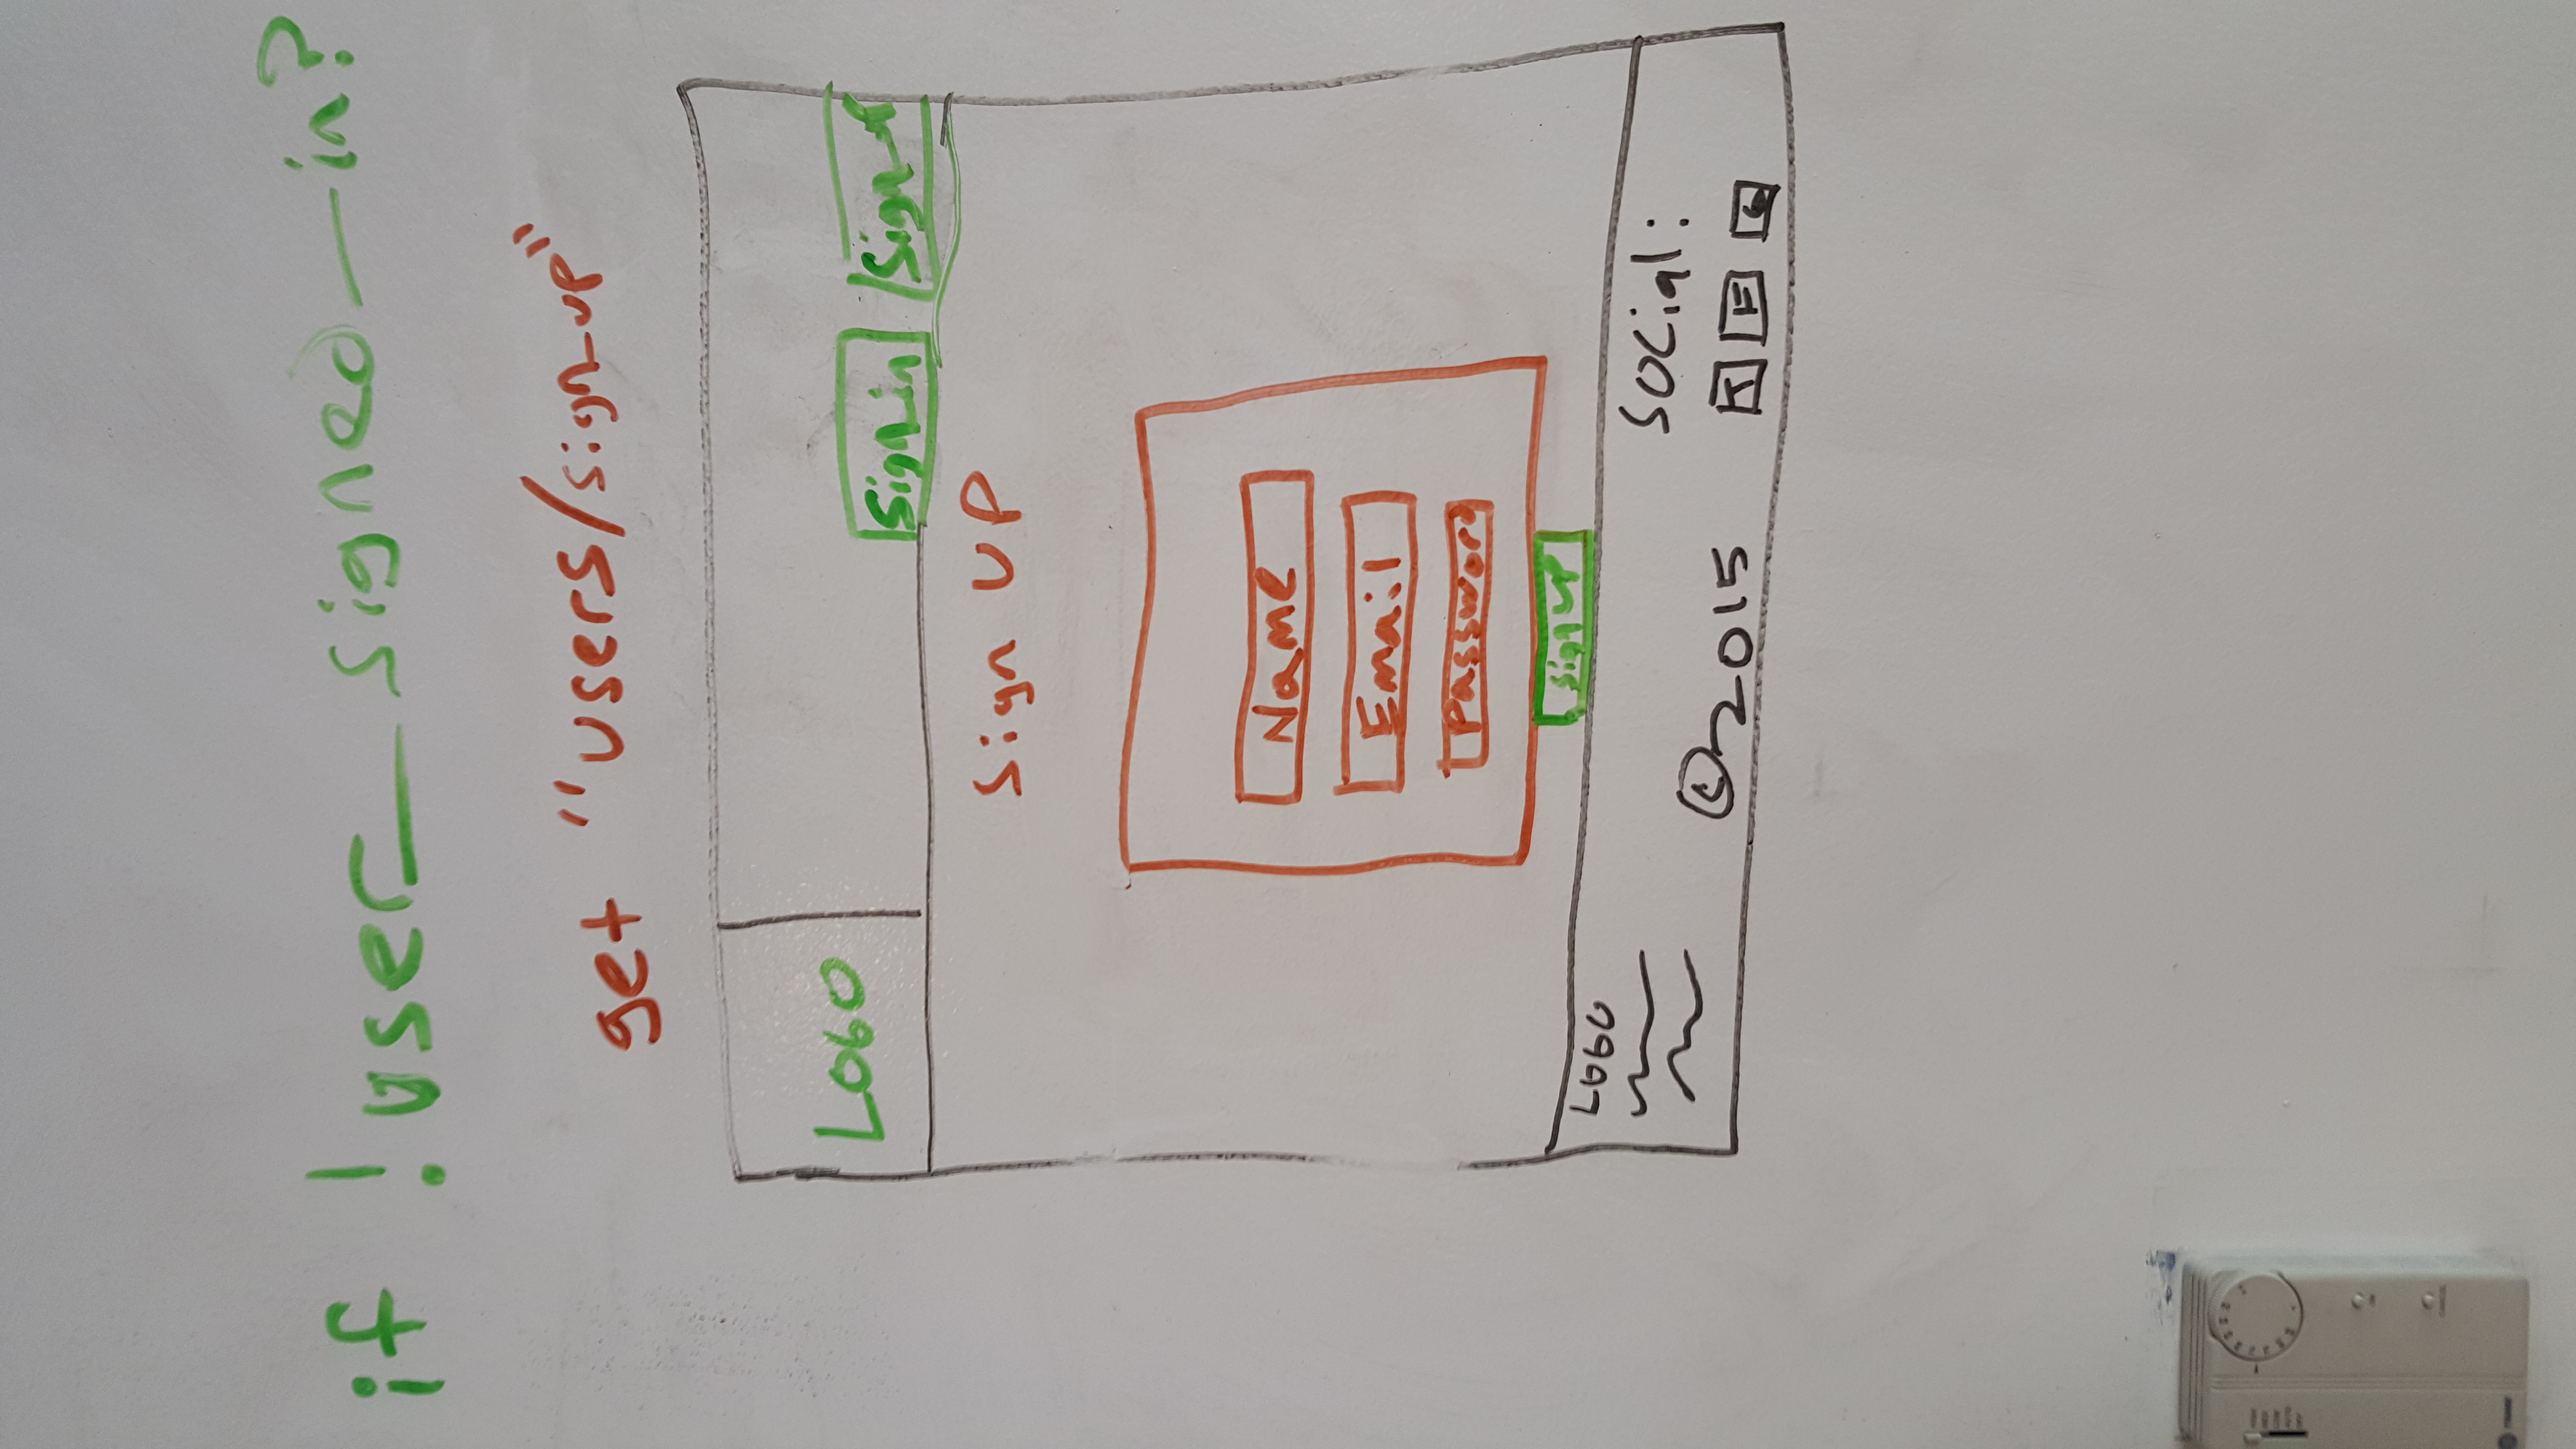 if !user_signed_in?
get "users/sign_up"
LOGO
Sign in Sign up
Sign UP
Name
Email
Password
sign up
LOGO
©2015
Social:
T F G